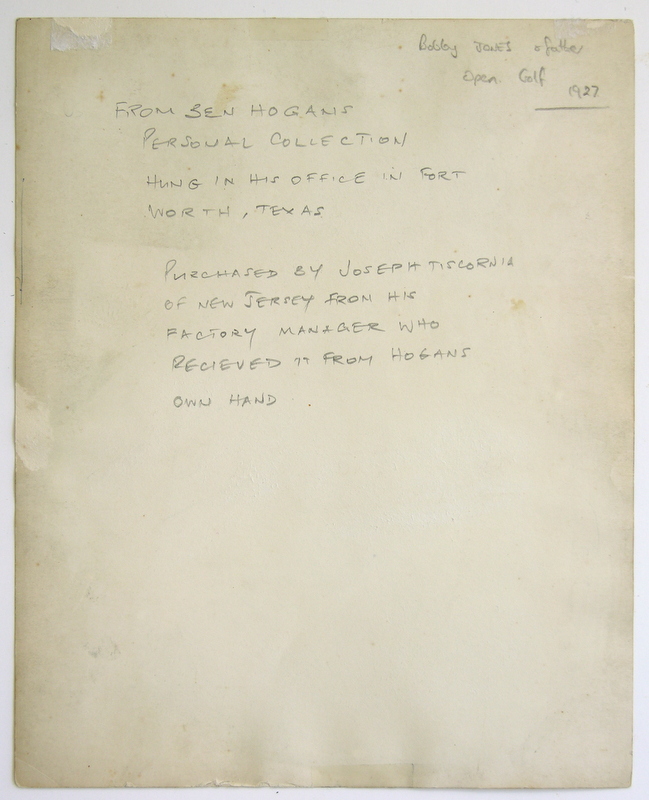 Bobby JONES & father
Open Golf
1927
FROM BEN HOGANS
PERSONAL COLLECTION
HUNG IN HIS OFFICE IN FORT
WORTH, TEXAS
PURCHASED BY JOSEPH TISCORNIA
OF NEW JERSEY FROM HIS
FACTORY MANAGER WHO
RECIEVED IT FROM HOGANS
OWN HAND.